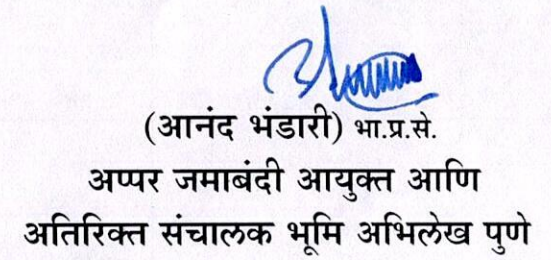 (आनंद भंडारी) भा.प्र.से.
अप्पर जमाबंदी आयुक्त आणि
अतिरिक्त संचालक भूमि अभिलेख पुणे